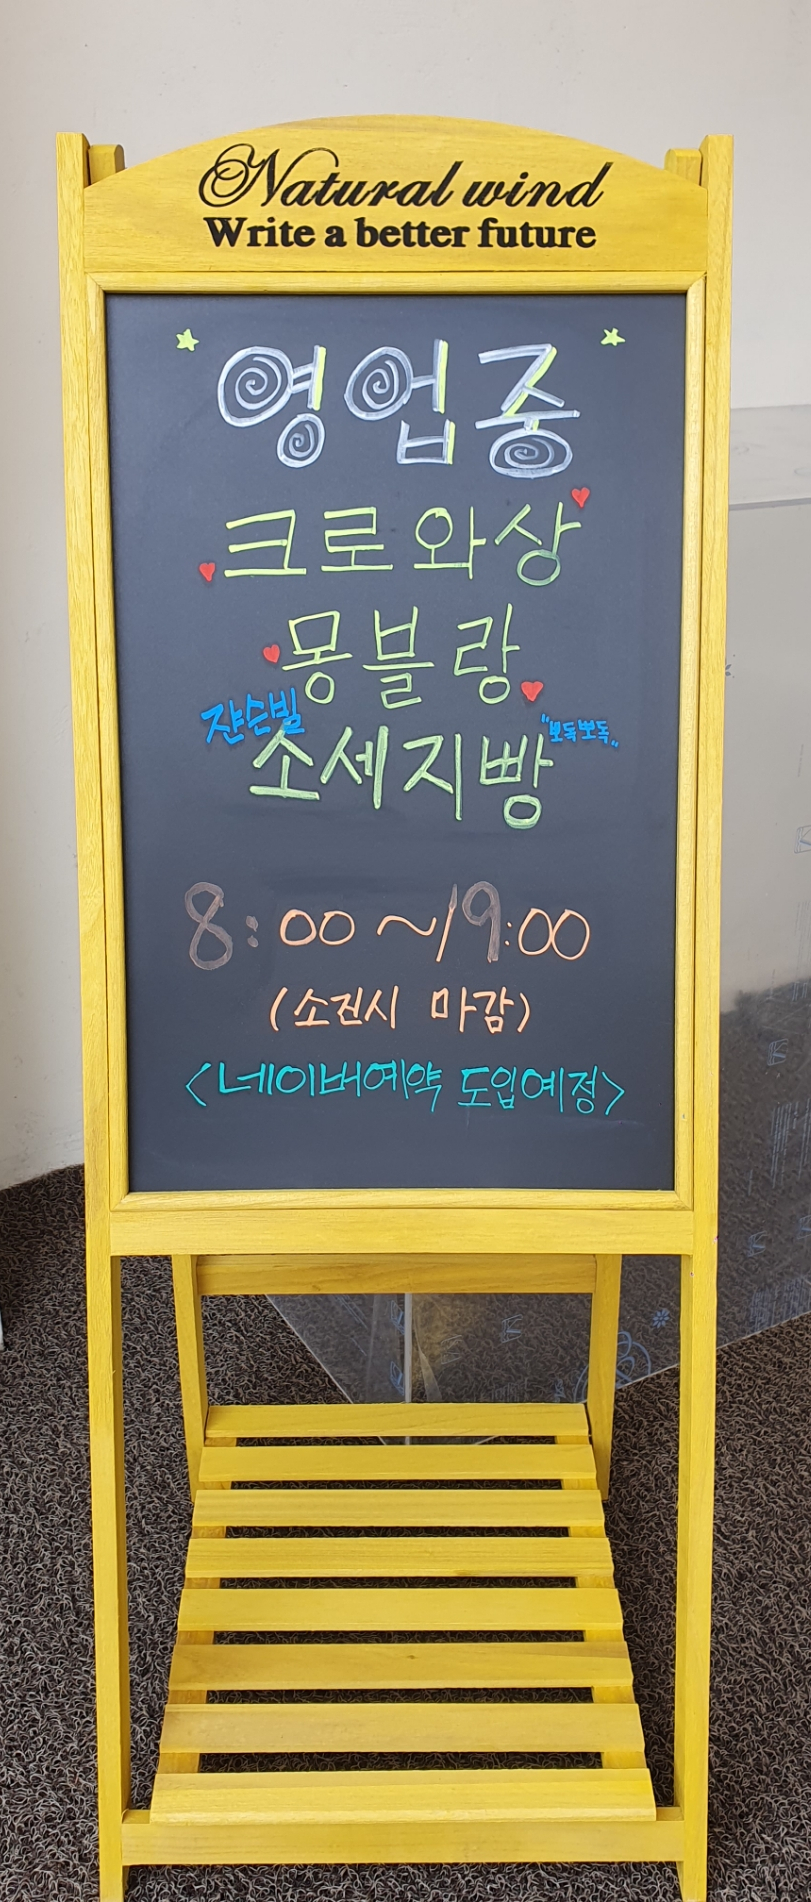 Natural wind
Write a better future
영업중
크로와상
몽블랑
쟌슨빌
소세지빵 "뽀독뽀독"
8:00~19:00
(소진시 마감)
<네이버예약 도입예정>